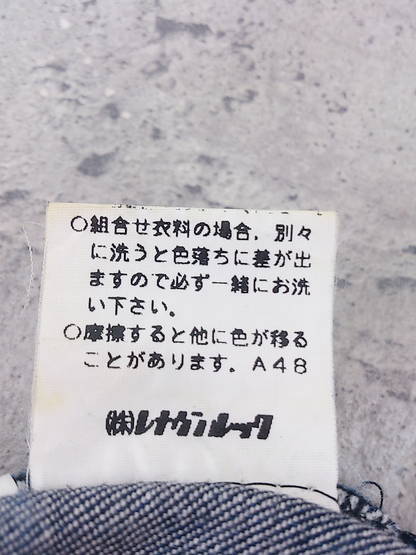 ○組合せ衣料の場合，別々
に洗うと色落ちに差が出
ますので必ず一緒にお洗
い下さい。
○摩擦すると他に色が移る
ことがあります。A48
㈱レナウンルック